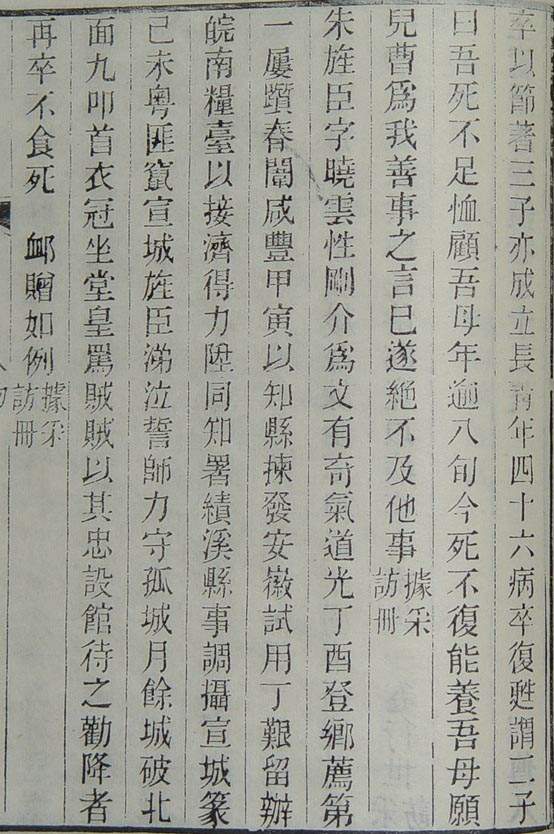 卒以節著三子亦成立長青年四十六病卒復甦謂二子
曰吾死不足恤顧吾母年逾八旬今死不復能養吾母願
兒曹爲我善事之言已遂絕不及他事據采訪冊
朱旌臣字曉雲性剛介爲文有奇氣道光丁酉登鄉薦第
一屢躓春闈咸豐甲寅以知縣揀發安徽試用丁艱留辦
皖南糧臺以接濟得力陞同知署績溪縣事調攝宣城篆
己未粵匪竄宣城旌臣涕泣誓師力守孤城月餘城破北
面九叩首衣冠坐堂皇罵賊賊以其忠設館待之勸降者
再卒不食死　卹贈如例據采訪冊